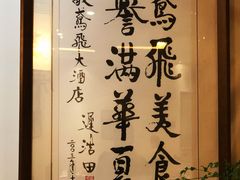 鸢飛美食
譽滿華夏
敬鸢飛大酒店
遲浩田